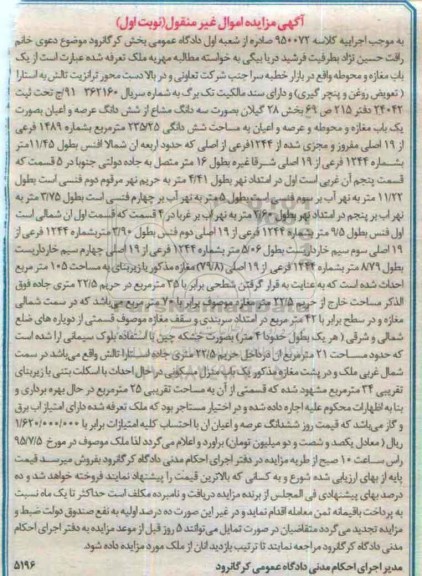 آگهی مزایده اموال غیر منقول(نوبت اول)
به موجب اجراییه کلاسه ۹۵۰۰۷۲ صادره از شعبه اول دادگاه عمومی بخش کرگانرود موضوع دعوی خانم
رافت حسین نژاد بطرفیت فرشید دریا بیگی به خواسته مطالبه مهریه ملک تعرفه شده عبارت است از یک
باب مغازه و محوطه واقع در بازار خطبه سرا جنب شرکت تعاونی و در بالا دست محور ترانزیت تالش به آستارا
(تعویض روغن و پنچر گیری) و دارای سند مالکیت تک برگ به شماره سریال ۲۶۲۱۶۰ ۹۱/ج تحت ثبت
۲۴۰۴۲ دفتر ۲۱۵ ص ۶۹ بخش ۲۸ گیلان بصورت سه دانگ مشاع از شش دانگ عرصه و اعیان بصورت
یک باب مغازه و محوطه و عرصه و اعیان به مساحت شش دانگی ۲۳۵/۲۵ مترمربع بشماره ۱۴۸۹ فرعی
از ۱۹ اصلی مفروز و مجزی شده از ۱۲۴۴فرعی از اصلی که حدود اربعه ان شمالا فنس بطول ۱۱/۴۵متر
بشماره ۱۲۴۴ فرعی از ۱۹ اصلی شرقا غیره بطول ۱۶ متر متصل به جاده دولتی جنوبا در ۵ قسمت که
قسمت پنجم آن غربی است اول در امتداد نهر بطول ۴/۴۱ متر به حریم نهر مرقوم دوم فنسی است بطول
۱۱/۲۲ متر به نهر آب بر سوم فنسی است بطول ۵متر به نهر آب بر چهارم فنسی است بطول ۳/۷۵ متر به
نهر اب بر پنجم در امتداد نهر بطول ۷/۶۰ متر به نهر اب بر غربا در ۴ قسمت که قسمت اول ان شمالی است
اول فنس بطول ۹/۵ متر بشماره ۱۲۴۴ فرعی از ۱۹ اصلی دوم فنس بطول ۳/۹۰ متربشماره ۱۲۴۴ فرعی از
۱۹ اصلی سوم سیم خارداریست بطول ۵/۰۶ متر بشماره ۱۲۴۴ فرعی از ۱۹ اصلی چهارم سیم خارداریست
بطول ۸/۷۹ متر بشماره ۱۲۴۴ فرعی از ۱۹ اصلی (۷۹/۸) مغازه مذکور با زیربنای به مساحت ۱۰۵ متر مربع
احداث شده است که به عنایت به قرار گرفتن سطحی برابر با ۳۵ مترمربع در حریم ۲۲/۵ متری جاده فوق
الذکر مساحت خارج از حریم ۲۲/۵ متر مغازه موصوف برابر با ۷۰ متر مربع می باشد که در سمت شمالی
مغازه و در سطح برابر با ۴۲ متر مربع در امتداد سربندی و سقف مغازه موصوف قسمتی از دویاره های ضلع
شمالی و شرقی (هر یک بطول حدودا ۴ متر) بصورت خشکه چین با استفاده بلوک سیمانی ارا شده است
که حدود مساحت ۲۱ مترمربع از ان داخل حریم ۲۲/۵ متری جاده آستارا تالش واقع می باشد در سمت
شمال غربی ملک و در پشت مغازه مذکور یک باب منزل مسکونی در حال احداث با اسکلت بتنی با زیربنای
تقریبی ۳۴ مترمربع مشهود شده که قسمتی از آن به مساحت تقریبی ۲۵ مترمربع در حال بهره برداری و
بنا به اظهارات محکوم علیه اجاره داده شده و در اختیار مستاجر بود که ملک تعرفه شده دارای امتیاز اب برق
و گاز می باشد که قیمت روز ششدانگ عرصه و اعیان ان با احتساب کلیه امتیازات برابر با ۱/۶۲۰/۰۰۰/۰۰۰
ریال (معادل یکصد و شصت و دو میلیون تومان) براورد و اعلام می گردد لذا ملک موصوف در مورخ ۹۵/۷/۵
راس ساعت ۱۰ صبح از طریه مزایده در دفتر اجرای احکام مدنی دادگاه کرگانرود بفروش میرسد قیمت
پایه از بهای ارزیابی شده شورع و به کسانی که بالاترین قیمت را پیشنهاد نمایند فروخته خواهد شد و ده
درصد بهای پیشنهادی فی المجلس از برنده مزایده دریافت و نامبرده مکلف است حداکثر تا یک ماه نسبت
به پرداخت باقیمانه ثمن معامله اقدام نماید و در غیر این صورت ده درصد اولیه به نفع صندوق دولت ضبط و
مزایده تجدید می گردد متقاضیان در صورت تمایل می توانند ۵ روز قبل از موعد مزایده به دفتر اجرای احکام
مدنی دادگاه کرگانرود مراجعه نمایند تا ترتیب بازدید انان از ملک مورد مزایده داده شود.
مدیر اجرای احکام مدنی دادگاه عمومی کرگانرود ۵۱۹۶